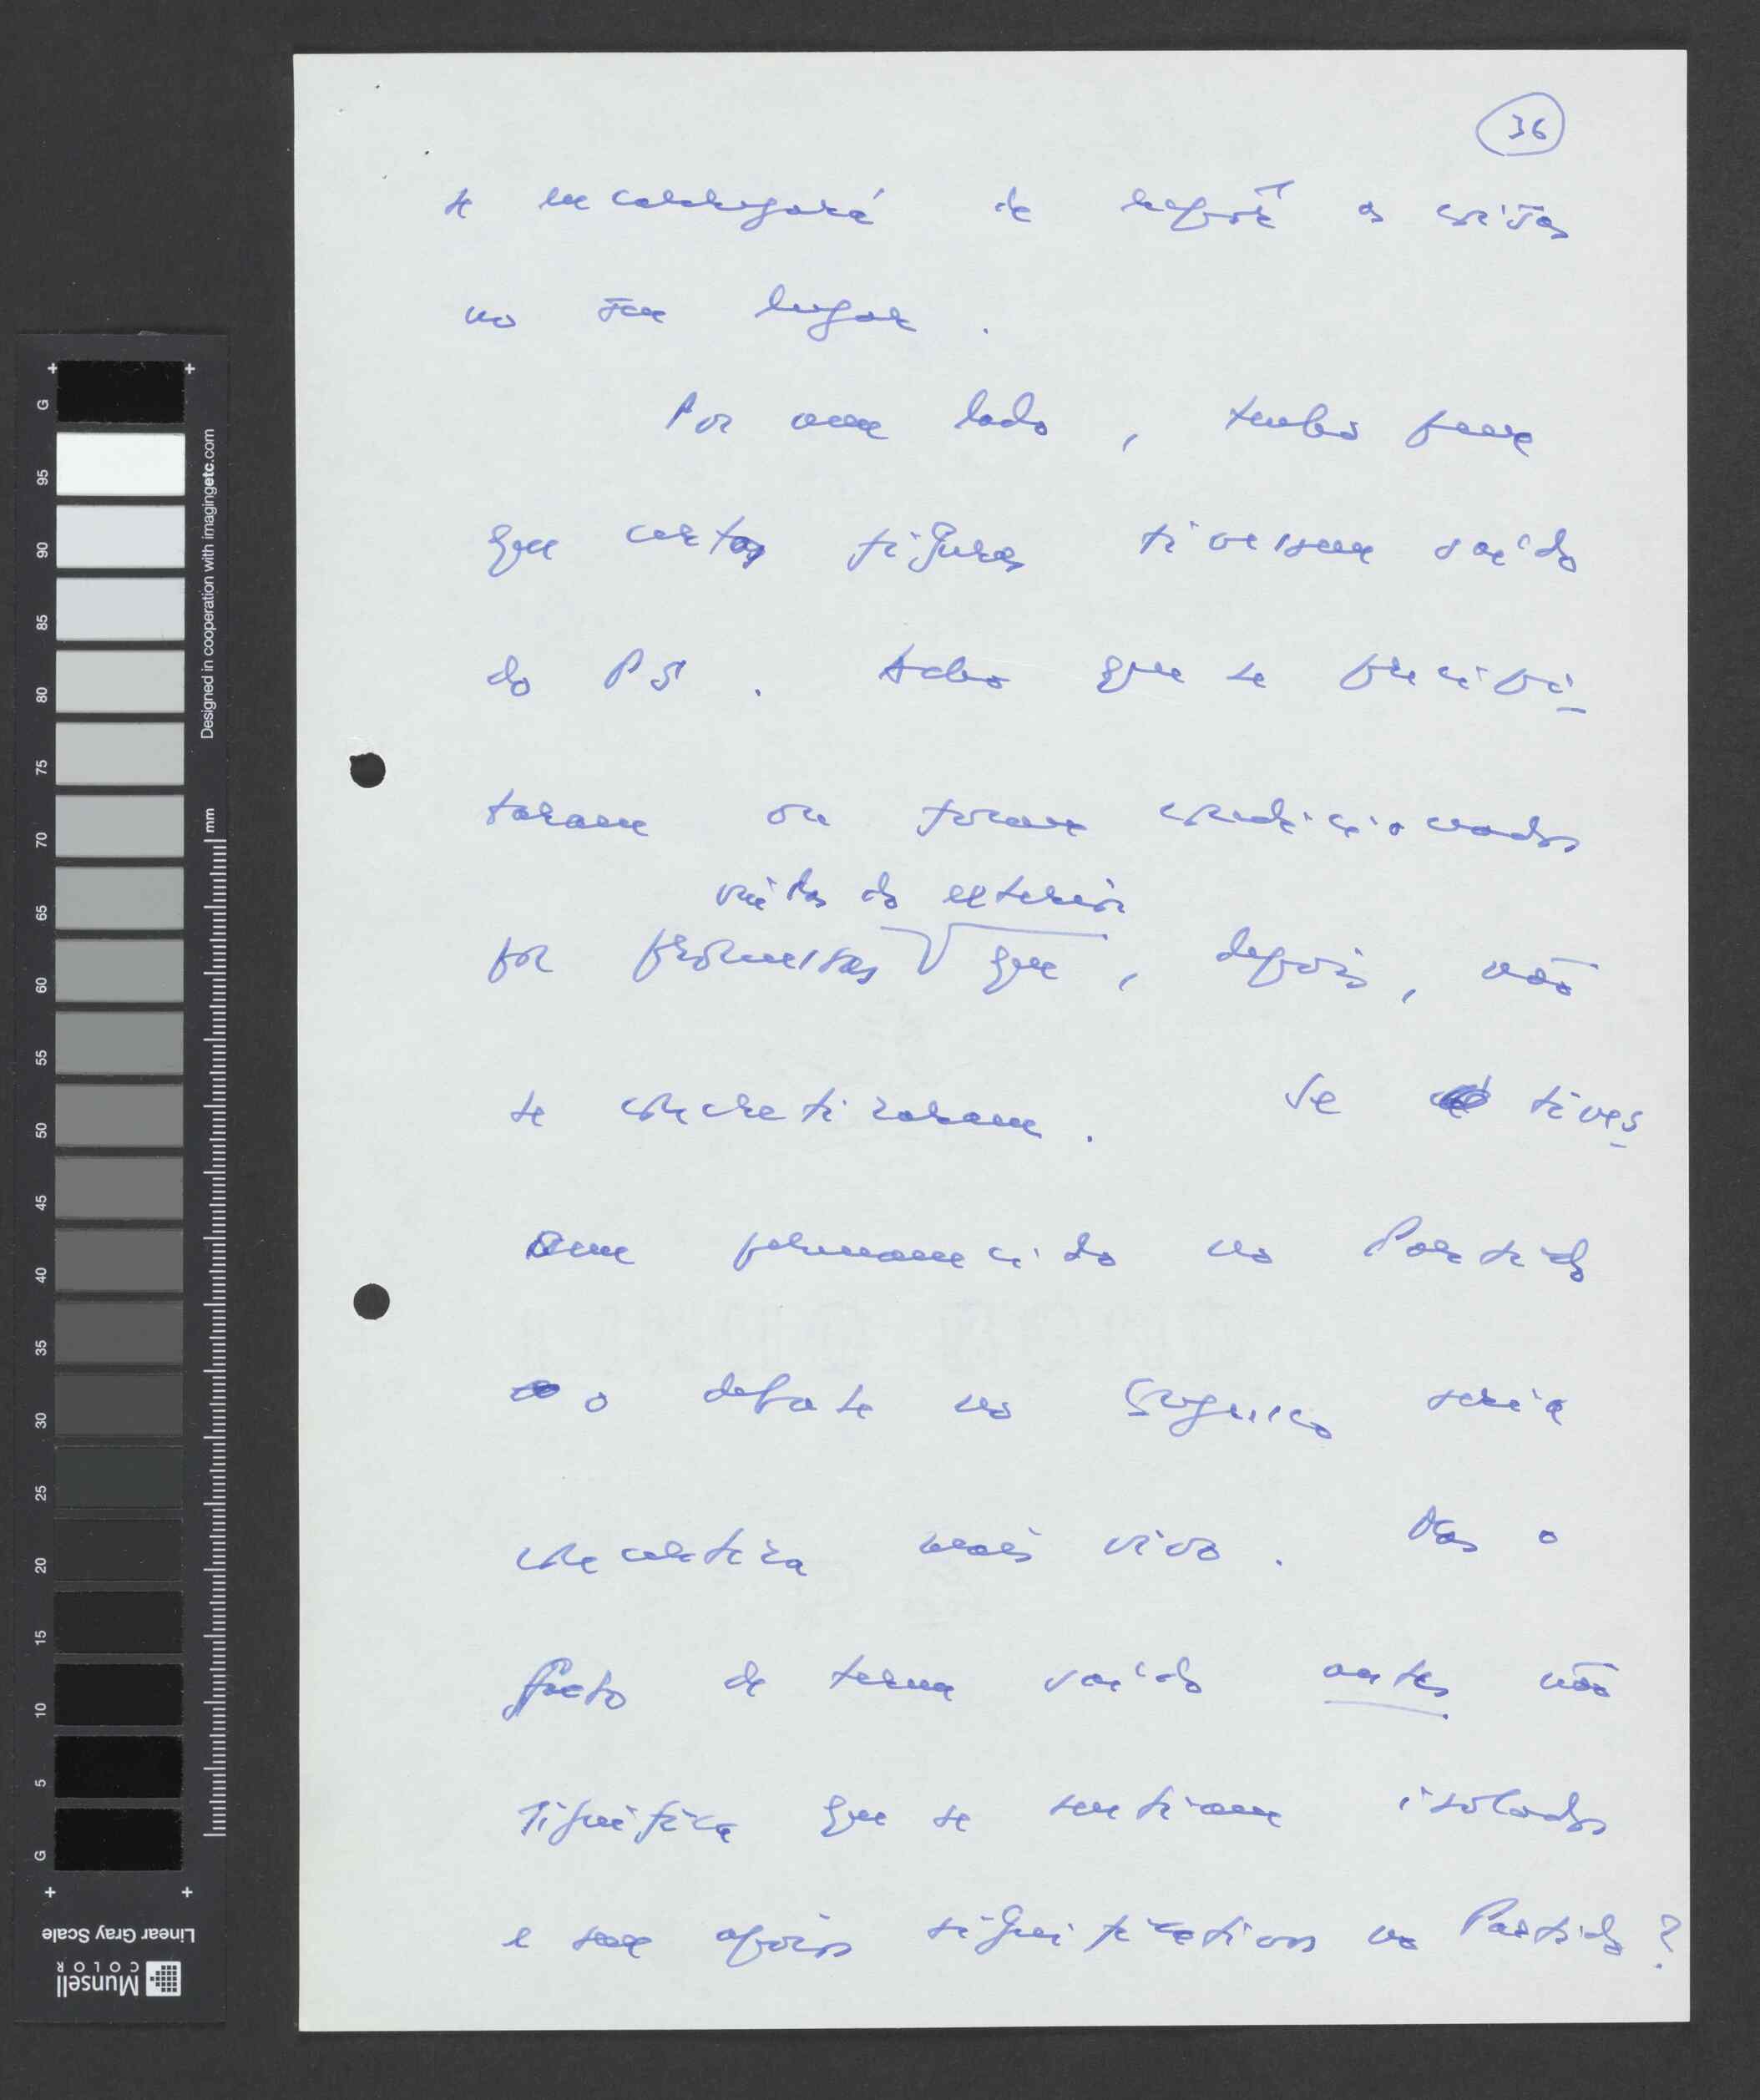 36
se encarregará de repôr as coisas
no seu lugar.
Por um lado, tenho pena
que certas figuras tivessem saído
do PS. Acho que se precipi-
taram ou foram condicionados
vindas do exterior
por promessas que, depois, não
se concretizaram. Se tives-
sem permanecido no Partido
o debate no Congresso seria
com certeza mais vivo. Mas o
facto de terem saído antes não
significa que se sentiam isolados
e sem apoios significativos no Partido?
G
95
90
85
80
75
70
65
60
55
50
45
40
35
30
25
20
15
10
5
G
Designed in cooperation with imagingetc.com
mm
Linear Gray Scale
Munsell
COLOR